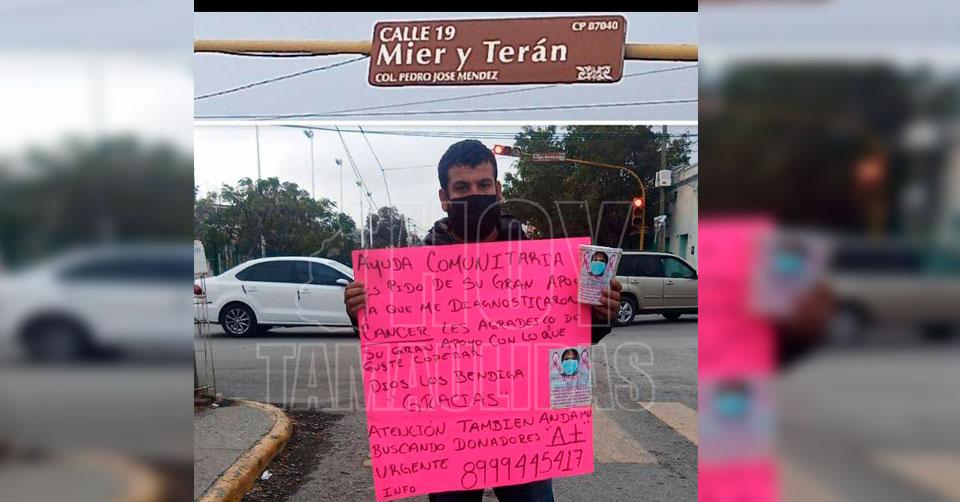 CALLE 19
CP 87040
Mier y Terán
COL. PEDRO JOSE MENDEZ
HOY
TAMAULIPAS
AYUDA COMUNITARIA
ES PIDO DE SU GRAN APOY
YA QUE ME DIAGNOSTICARON
CANCER LES AGRADESCO DE
SU GRAN APOYO CON LO QUE
GUSTE COPERAR
DIOS LOS BENDIGA
GRACIAS
ATENCIÓN TAMBIEN ANDAMO
BUSCANDO DONADORES "A+"
URGENTE 8999445417
INFO